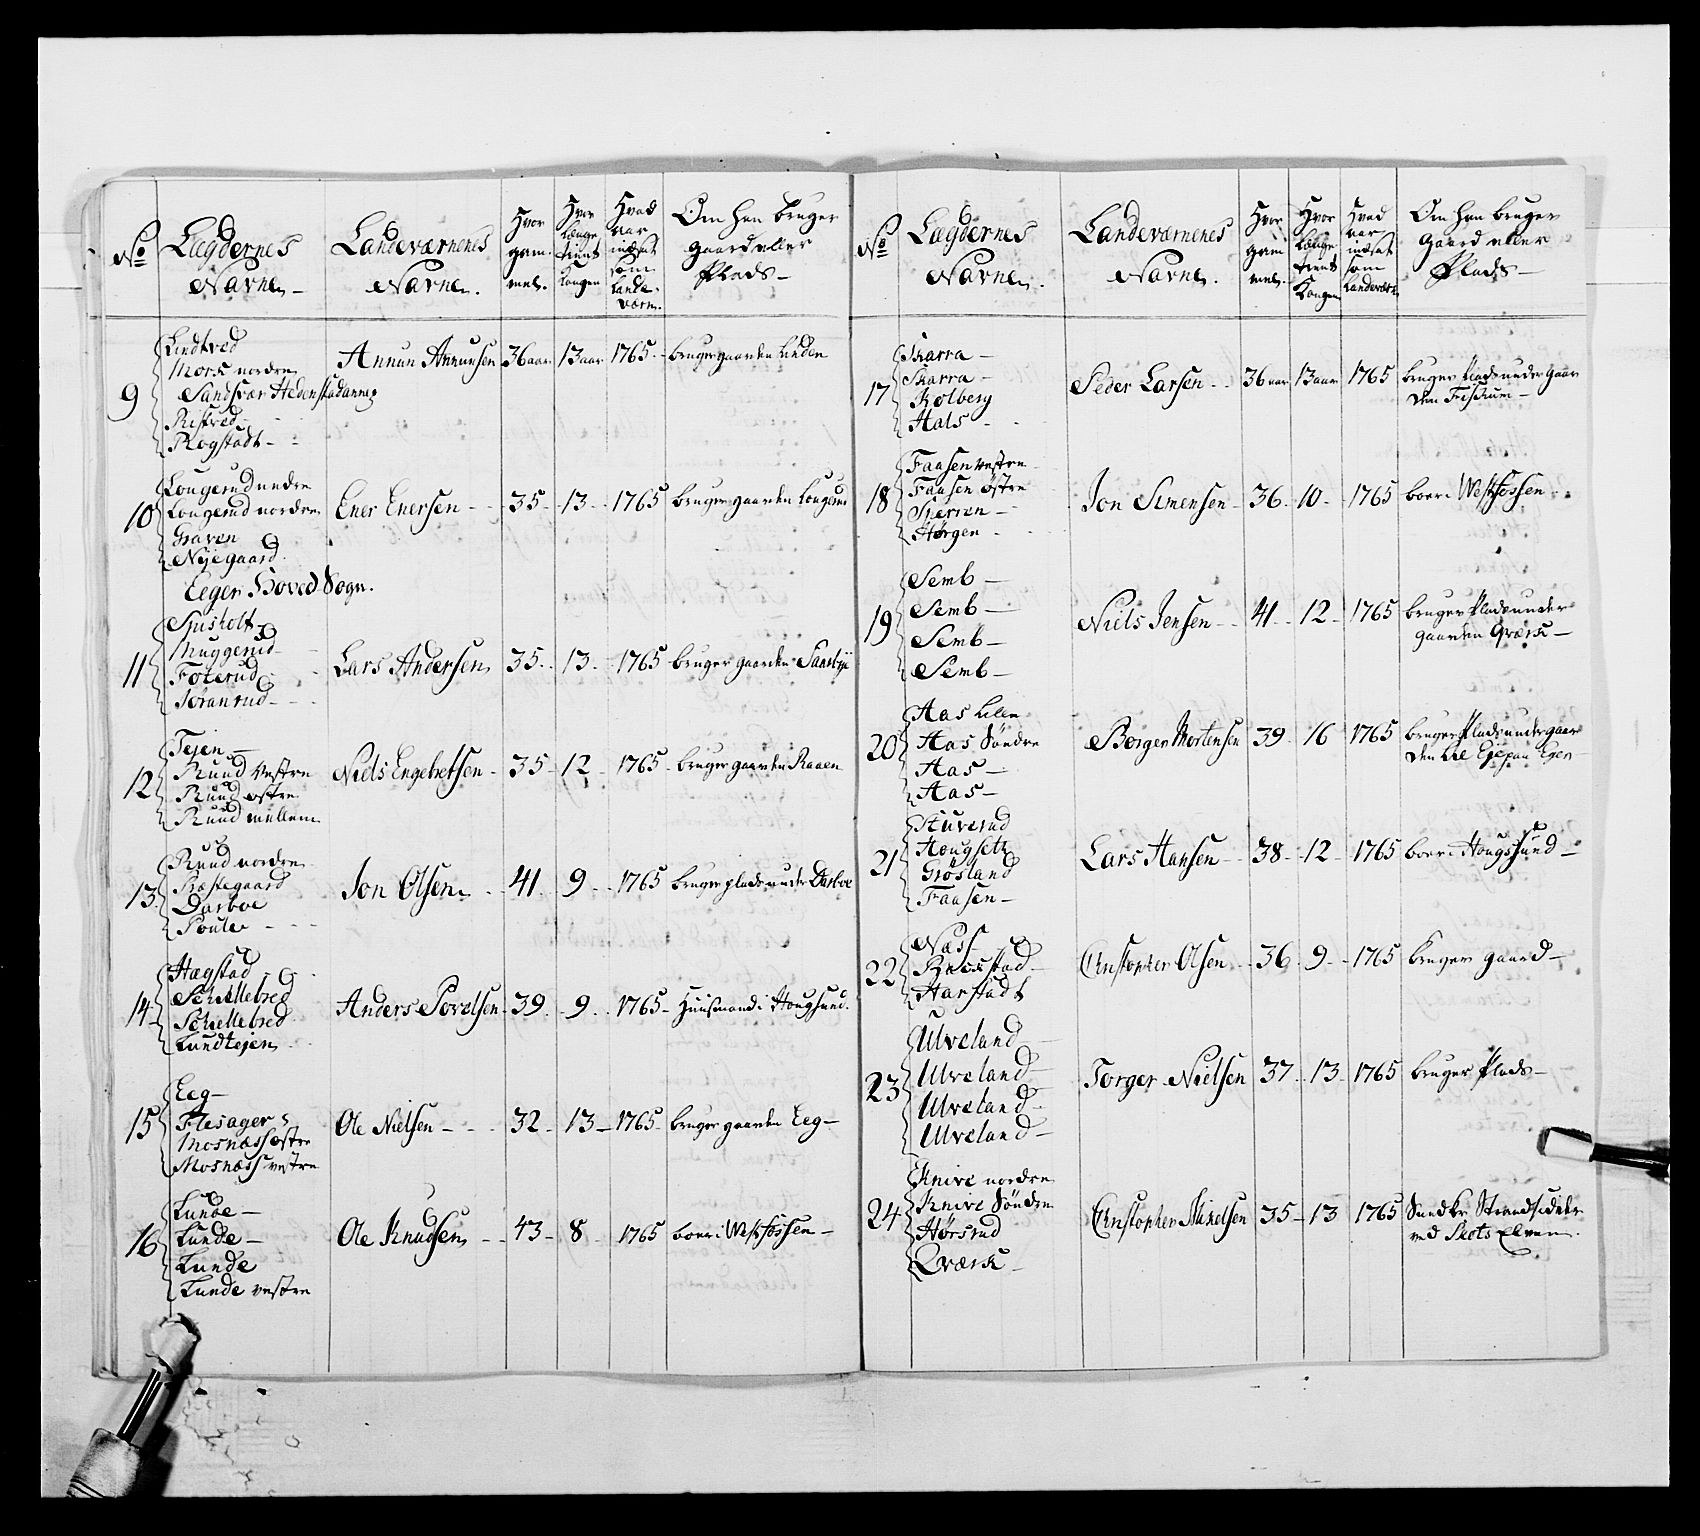 No
Lægdernes
Navne
Landeværnenes
Navne.
Hvor
gam-
mel.
Hvor
længe
tient
Kongen
Hvad
aar
indsat
som
Lande-
værn.
Om han bruger
gaard eller
Plads
9
Lindtved
Mork nordre
Sandsvær Hedenstad annex
Ristved
Rogstadt
Annun Annunsen 36 aar 13 aar 1765 bruger gaarden Linden
10
Lougerud nedre
Lougerud nordre
Graven
Nyegaard
Ener Enersen 35 13 1765 bruger gaarden Lougerud
Eeger Hoved Sogn.
11
Spisholt
Muggerud
Foterud
Joranrud
Lars Andersen 35 13 1765 bruger gaarden
12
Teien
Ruud vestre
Ruud østre
Ruud mellem
Niels Engebretsen 35 12 1765 bruger gaarden Raaen
13
Ruud nordre
Præstegaard
Darboe
Jon Olsen 41 9 1765 bruger plads under Darboe
14
Hægstad
Schellebred
Schellebred
Lundteien
Anders Povelsen 39 9 1765 Huusmand i Hougsund.
15
Eeg
Flesager
Mosnæss østre
Mosnæss vestre
Ole Nielsen 32 13 1765 bruger gaarden Eeg
16
Lunde
Lunde
Lunde
Lunde vestre
Ole Knudsen 43 8 1765 boer i Westfossen
No
Lægdernes
Navne.
Landeværnenes
Navne.
Hvor
gam
mel.
Hvor
længe
tient
Kongen
Hvad
aar
indsat
som
Landeværn
Om han bruger
Gaard eller
Plads
17
Skarra
Skarra
Kolberg
Hals
Peder Larsen 36 aar 13 aar 1765 bruger Plads under Gaar
den Fiskum
18
Faasen vestre
Faasen østre
Sierren
Hørgen
Jon Simensen 36 10 1765 boer i Westfossen
19
Semb
Semb
Semb
Semb
Niels Jensen 41 12 1765 bruger Plads under
gaarden Qværk
20
Aas Lille
Aas Søndre
Aas
Aas
Borger Mortensen 39 16 1765 bruger Plads under gaar
den
21
Stuverud
Hougsetr
Grøsland
Faasen
Lars Hansen 38 12 1765 boer i Hougssund
22
Næss
Harstadt
Christopher Olsen 36 9 1765 bruger gaard
23
Ulveland
Ulveland
Ulveland
Ulveland
Torger Nielsen 37 13 1765 bruger Plads
24
Knive nordre
Knive Søndre
Hørsrud
Qværk
Christopher Mikelsen 35 13 1765 Strandsidder
ved Skots Elven.